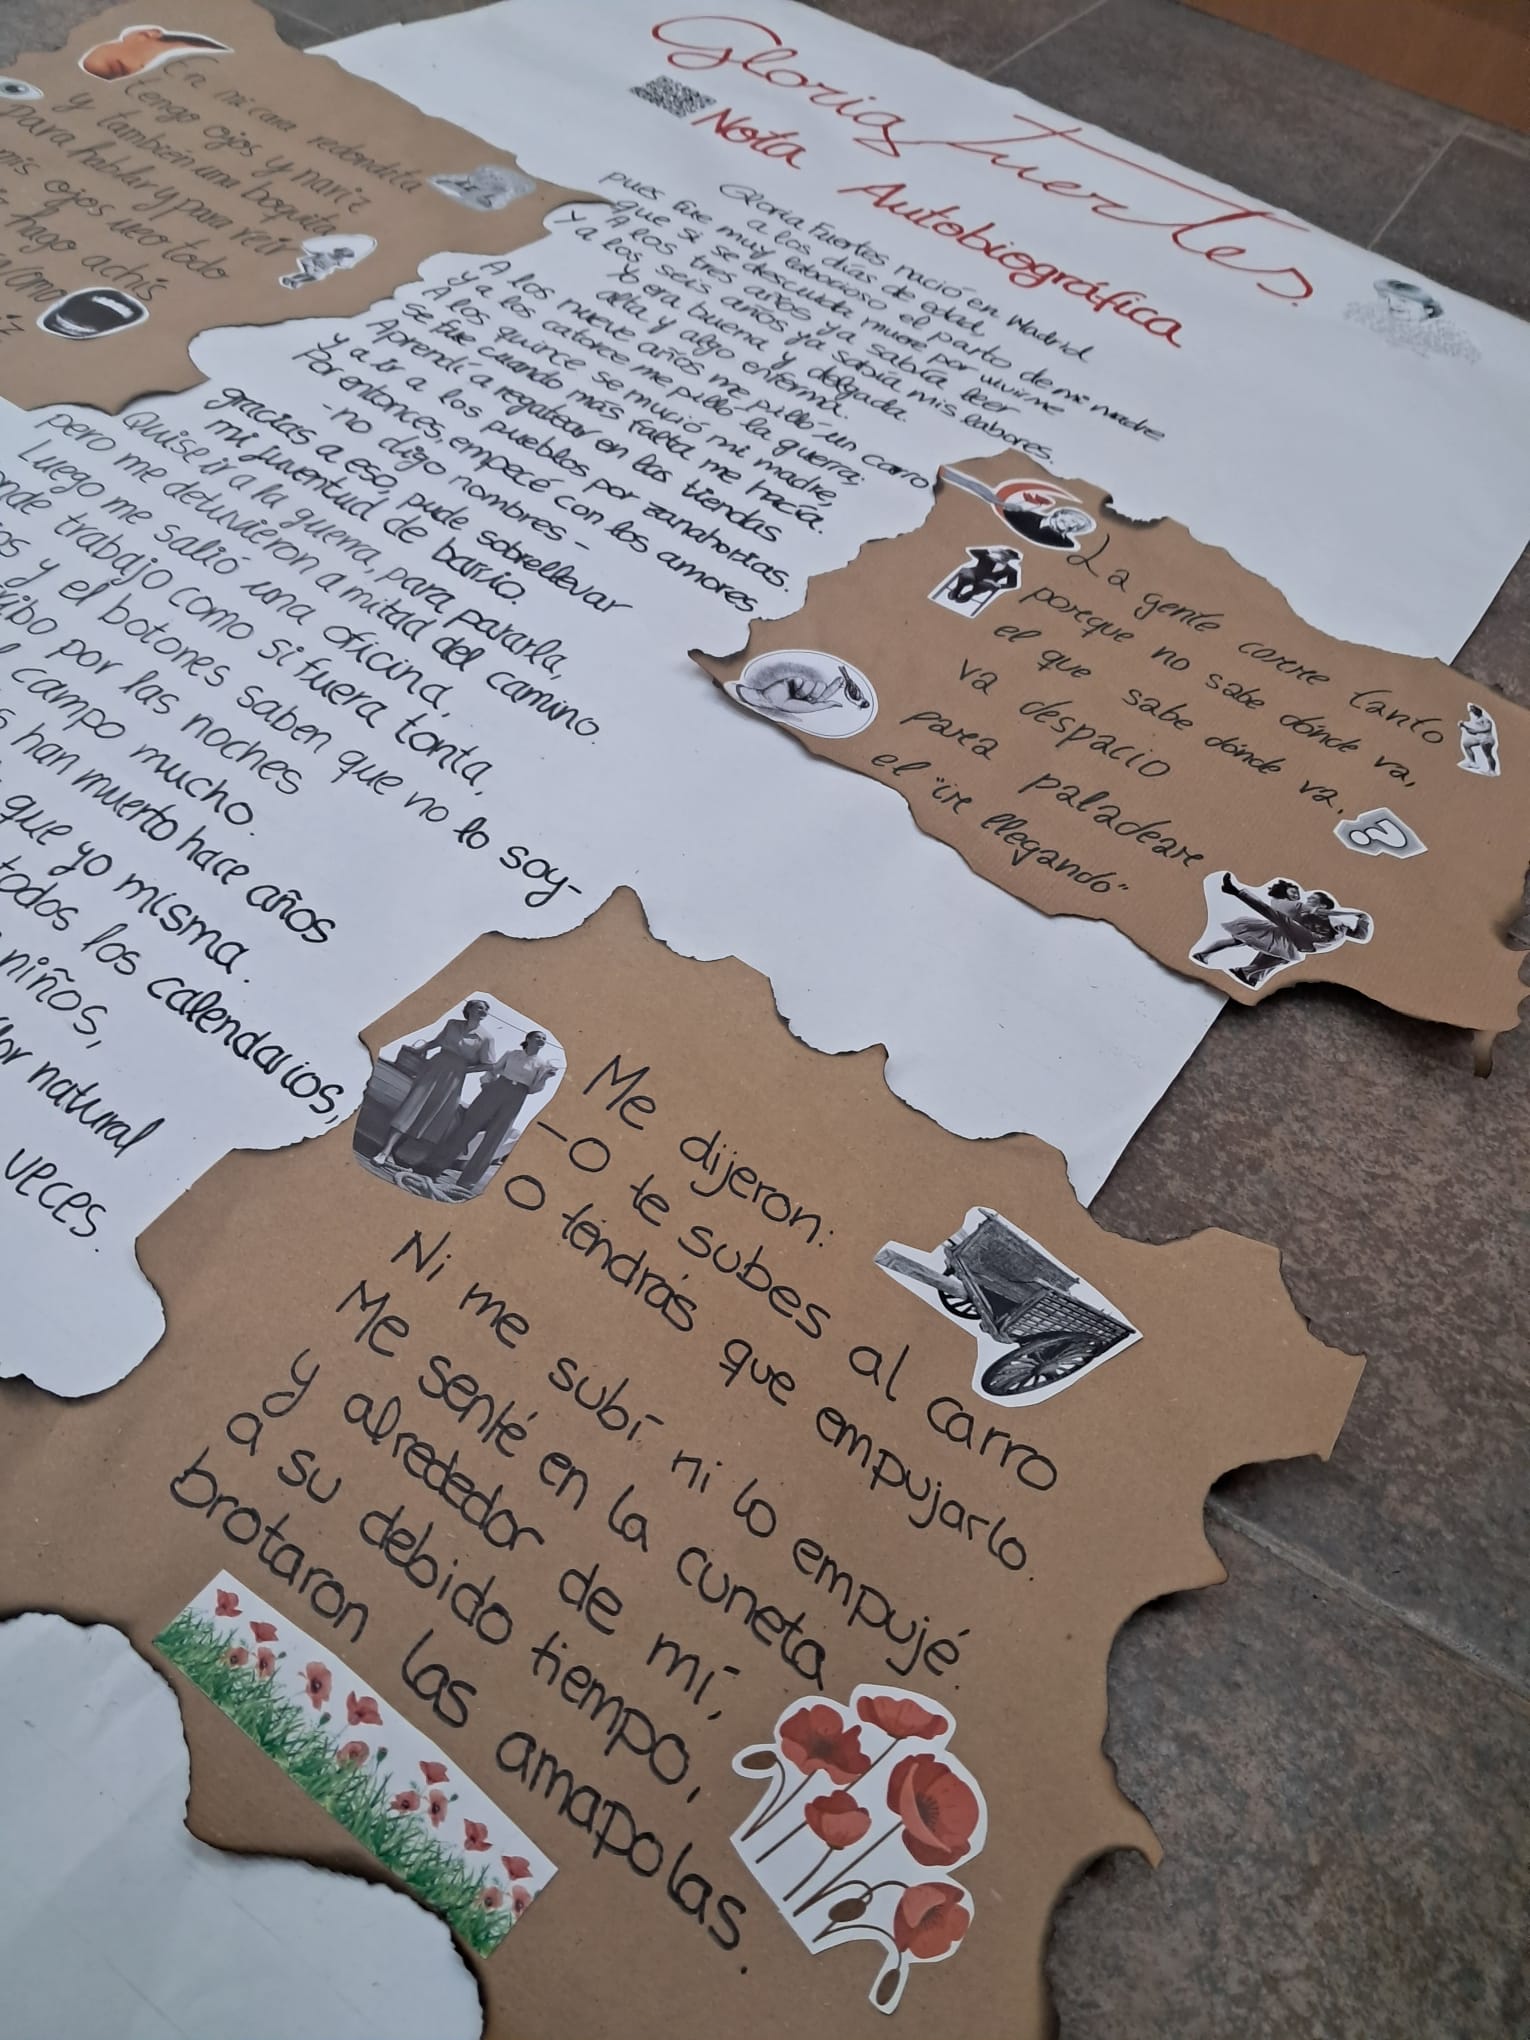 Gloria Fuertes.
Nota Autobiográfica
Gloria Fuertes nació en Madrid
a los días de edad,
pues fue muy laborioso el parto de mi madre
que si se descuida muere por vivirme
A los tres años ya sabía leer
y a los seis años ya sabía mis labores.
Yo era buena y delgada
alta y algo enferma.
A los nueve años me pilló un carro
y a los catorce me pilló la guerra;
A los quince se murió mi madre,
se fue cuando más falta me hacía.
Aprendí a regatear en las tiendas
y a ir a los pueblos por zanahorias.
Por entonces, empecé con los amores
-no digo nombres-
gracias a eso, pude sobrellevar
mi juventud de barrio.
Quise ir a la guerra, para pararla,
pero me detuvieron a mitad del camino.
Luego me salió una oficina,
donde trabajo como si fuera tonta,
y el botones saben que no lo soy-
por las noches
campo mucho.
han muerto hace años
que yo misma.
todos los calendarios,
niños,
natural
veces.
En mi cara redondita
tengo ojos y nariz
y también una boquita
para hablar y para reír
mis ojos veo todo
hago achís
como
La gente corre tanto
porque no sabe dónde va,
el que sabe dónde va.
va despacio
para paladear
el "ir llegando"
?
Me dijeron:
-O te subes al carro
O tendrás que empujarlo.
Ni me subí ni lo empujé.
Me senté en la cuneta
y alrededor de mí,
a su debido tiempo,
brotaron las amapolas.